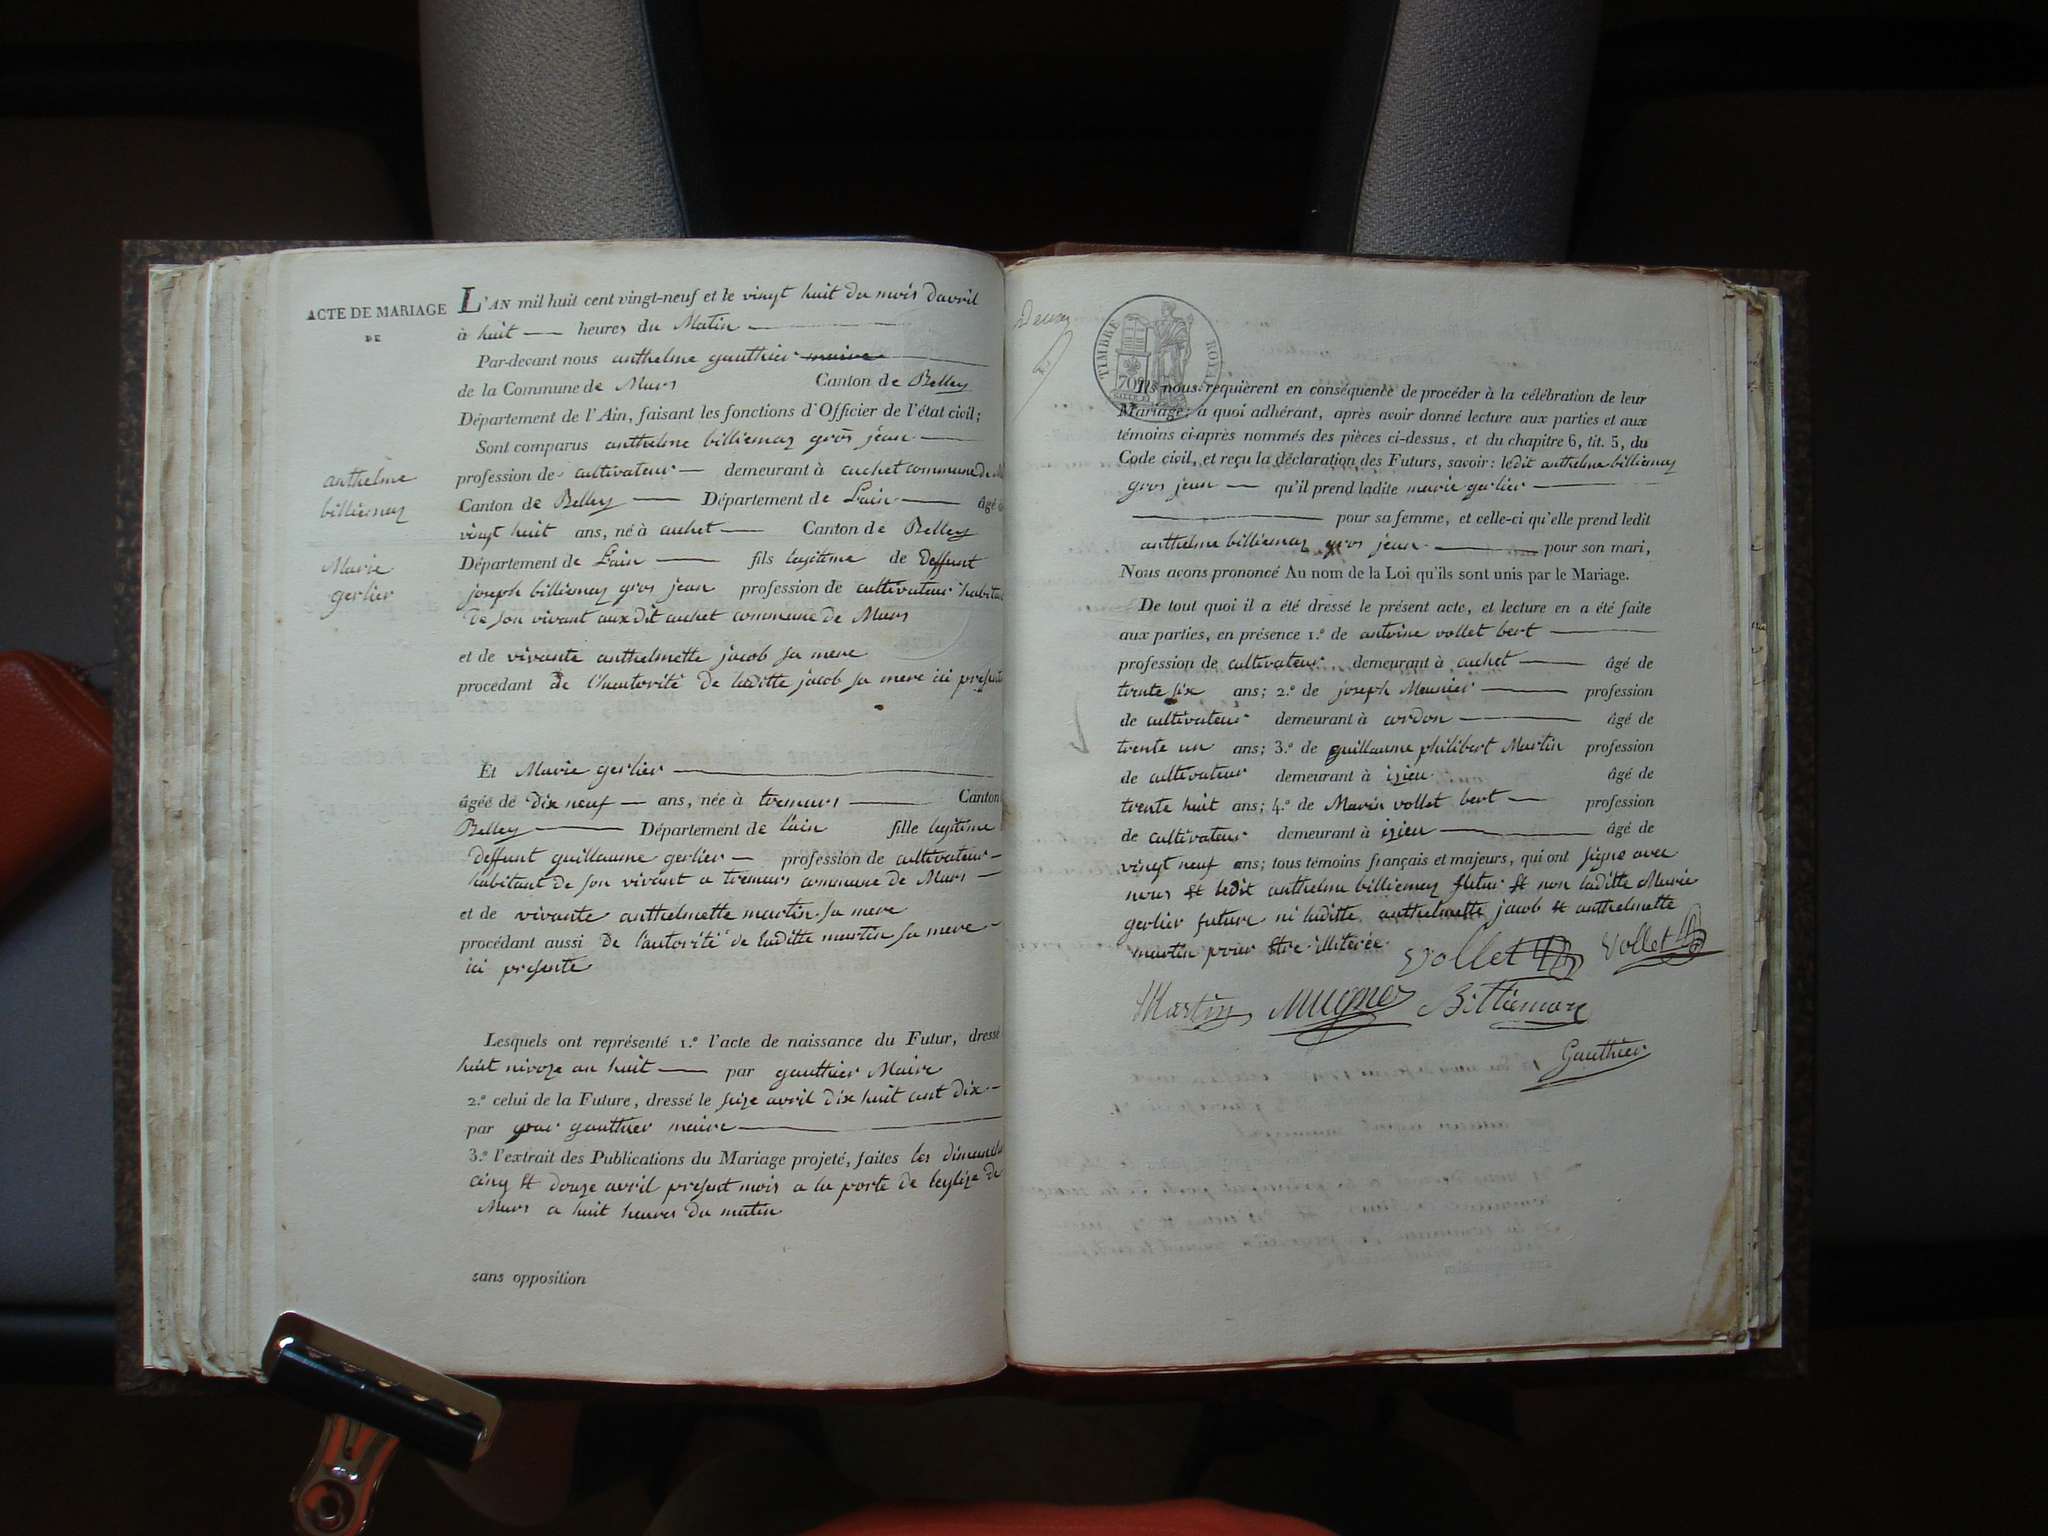 ACTE DE MARIAGE
DE
anthelme
billiemaz
Marie
gerlier
L'AN mil huit cent vingt-neuf et le vingt huit du mois davril
à huit heures du Matin
Par-devant nous anthelme gauthier maire
de la Commune de Murs Canton de Belley
Département de l'Ain, faisant les fonctions d'Officier de l'état civil;
Sont comparus anthelme billiemaz gros jean
profession de cultivateur demeurant à cuchet commune de
Canton de Belley Département de Lain âgé
vingt huit ans, né à cuchet Canton de Belley
Département de Lain fils legitime de deffunt
joseph billiemaz gros jean profession de cultivateur
de son vivant aux dit cuchet commune de Murs
et de vivante anthelmette jacob sa mere
procédant de lhautorité de laditte jacob sa mere ici presente
Et Marie gerlier
âgée de dix neuf ans, née à tremurs Canton
Belley Département de lain fille legitime
deffunt guillaume gerlier profession de cultivateur
habitant de son vivant a tremurs commune de Murs
et de vivante anthelmette martin sa mere
procédant aussi de lautorité de laditte martin sa mere
ici presente
Lesquels ont représenté 1.º l'acte de naissance du Futur, dressé
huit nivoze an huit par gauthier Maire
2.º celui de la Future, dressé le seize avril dix huit cent dix
par gauthier maire
3.º l'extrait des Publications du Mariage projeté, faites les dimanche
cinq et douze avril present mois a la porte de leglize de
Murs a huit heures du matin
sans opposition
TIMBRE ROYAL
70
Ils nous requièrent en conséquence de procéder à la célébration de leur
Mariage; a quoi adhérant, après avoir donné lecture aux parties et aux
témoins ci-après nommés des pièces ci-dessus, et du chapitre 6, tit. 5, du
Code civil, et reçu la déclaration des Futurs, savoir: ledit anthelme billiemaz
gros jean qu'il prend ladite marie gerlier
pour sa femme, et celle-ci qu'elle prend ledit
anthelme billiemaz gros jean pour son mari,
Nous avons prononcé Au nom de la Loi qu'ils sont unis par le Mariage.
De tout quoi il a été dressé le présent acte, et lecture en a été faite
aux parties, en présence 1.º de antoine vollet bert
profession de cultivateur demeurant à cuchet âgé de
trente six ans; 2.º de joseph Meunier profession
de cultivateur demeurant à cordon âgé de
trente un ans; 3.º de guillaume philibert Martin profession
de cultivateur demeurant à izieu âgé de
trente huit ans; 4.º de Marin vollet bert profession
de cultivateur demeurant à izieu âgé de
vingt neuf ans; tous témoins français et majeurs, qui ont signe avec
nous et ledit anthelme billiemaz futur et non laditte Marie
gerlier future ni laditte anthelmette jacob et anthelmette
martin pour etre illiterée
vollet vollet
Martin Billiemaz
Gauthier